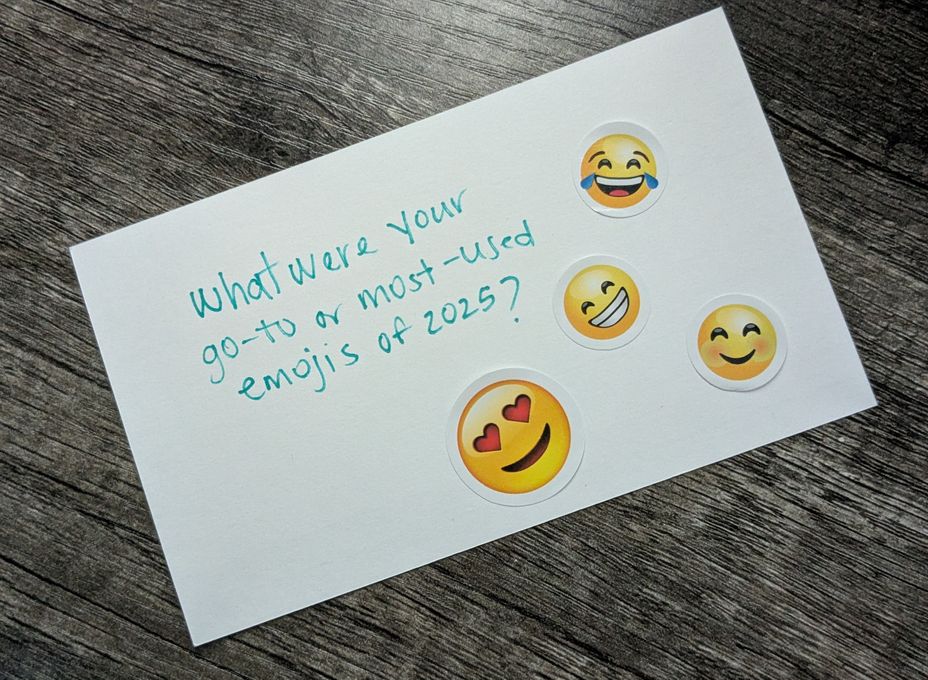 what were your
go-to or most-used
emojis of 2025?